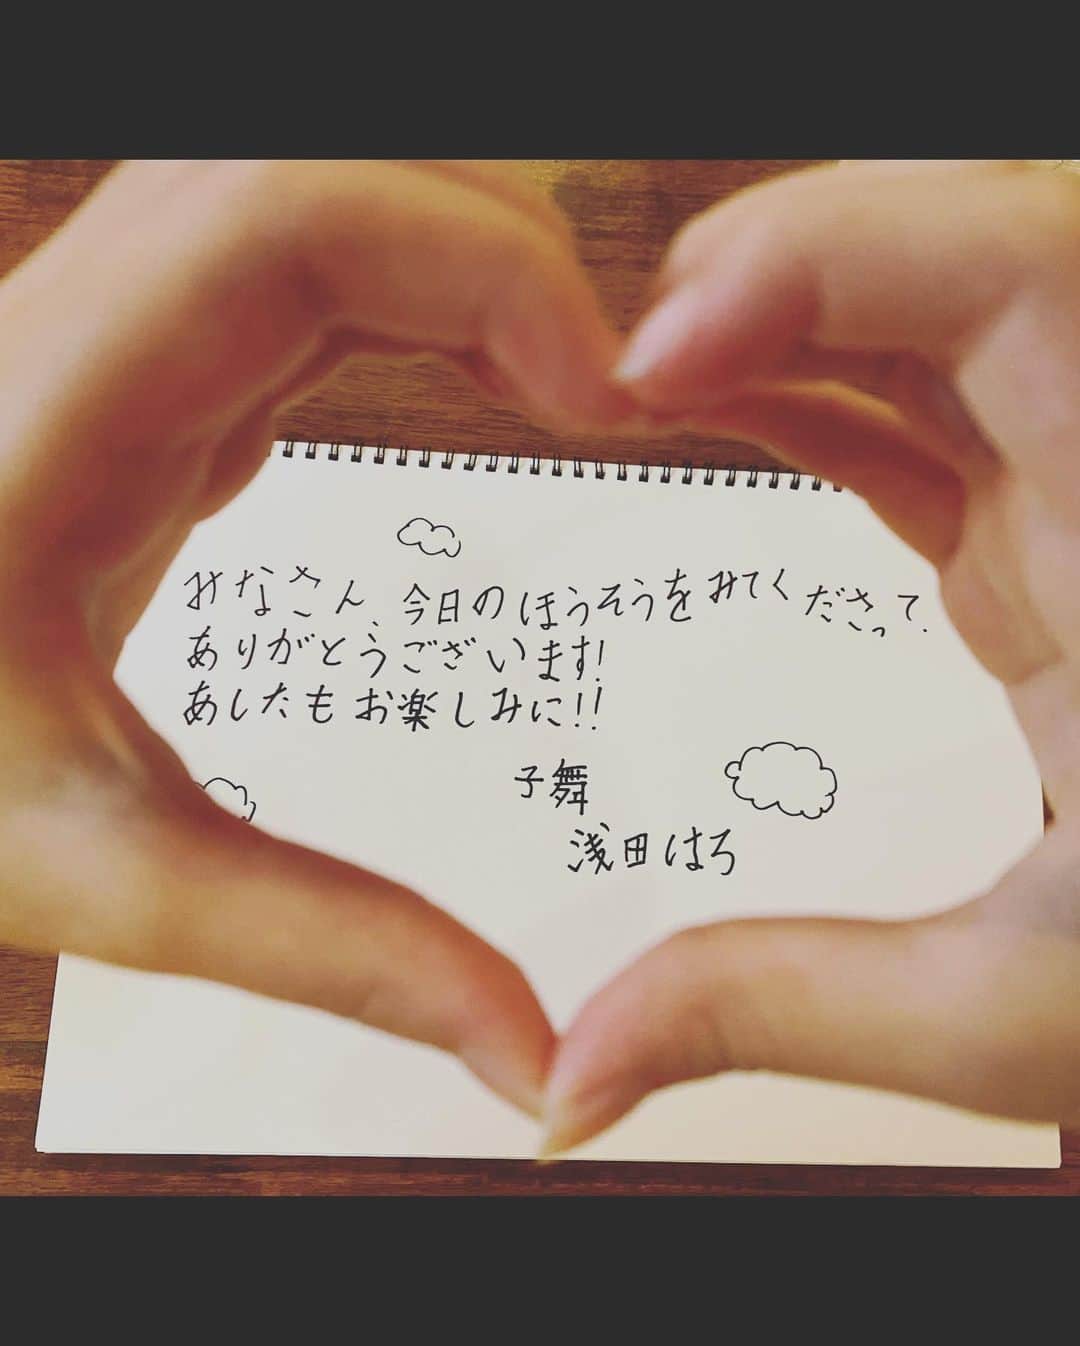 みなさん、今日のほうそうをみてくださって、
ありがとうございます!
あしたもお楽しみに!!
子舞
浅田はろ